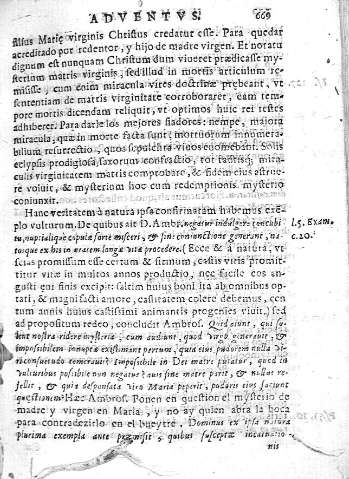 ADVENTVS. 669
filius Mariæ virginis Christus credatur esse. Para quedar
acreditado por redentor, y hijo de madre virgen. Et notatu
dignum est nunquam Christum dum viueret prædicasse my-
sterium matris virginis, sed illud in mortis articulum re-
misisse, cum enim miracula vires doctrinæ præbeant, vt
sententiam de matris virginitate corroboraret, eam tem-
pore mortis dicendam reliquit, vt optimos huic rei testes
adhiberet. Para darle los mejores fiadores: nempe, maiora
miracula, quæ in morte facta sunt; mortuorum innumera-
bilium resurrectio, quos sepulchra viuos euomebant. Solis
eclypsis prodigiosa, saxorum confractio, tot tantisq; mira-
culis virginitatem matris comprobare, & fidem eius astrue-
re voluit, & mysterium hoc cum redemptionis mysterio
coniunxit.
Hanc veritatem à natura ipsa confirmatam habemus exē-
plo vulturum. De quibus ait D. Ambr. negatur indulgere concubi-
tu, nuptialique copulæ sorte misceri, & sine coniunctione generant, na-
tosque ex his in ætatem longæ vitæ procedere. (Ecce & à natura, vt
promissum esse certum & firmum, castis viris promit-
titur vitæ in multos annos productio, nec facile eos an-
gusti eui finis excipit: saltim huius boni ita ab omnibus op-
tati, & magni facti amore, castitatem colere debemus, cen-
tum annis huius castissimi animantis progenies viuit.) sed
ad propositum redeo, concludit Ambros. Quid aiunt, qui so-
lent nostra ridere mysteria: cum audiunt, quod virgo generauit, &
impossibilem innuptæ existimant partum, quia eius pudorem nulla viri
consuetudo temerauit? Impossibile in Dei matre putatur, quod in
vulturibus possibile non negatur? auis sine matre parit, & nullus re-
fellit, & quia desponsata viro Maria peperit, pudoris eius faciunt
quæstionem? Hæc Ambros. Ponen en question el mysterio de
madre y virgen en Maria, y no ay quien abra la boca
para contradezirlo en el bueytre. Dominus ex ipsa natura
plurima exempla ante præmisit, quibus susceptæ incarnatio-
nis
L 5. Exam.
c. 20.